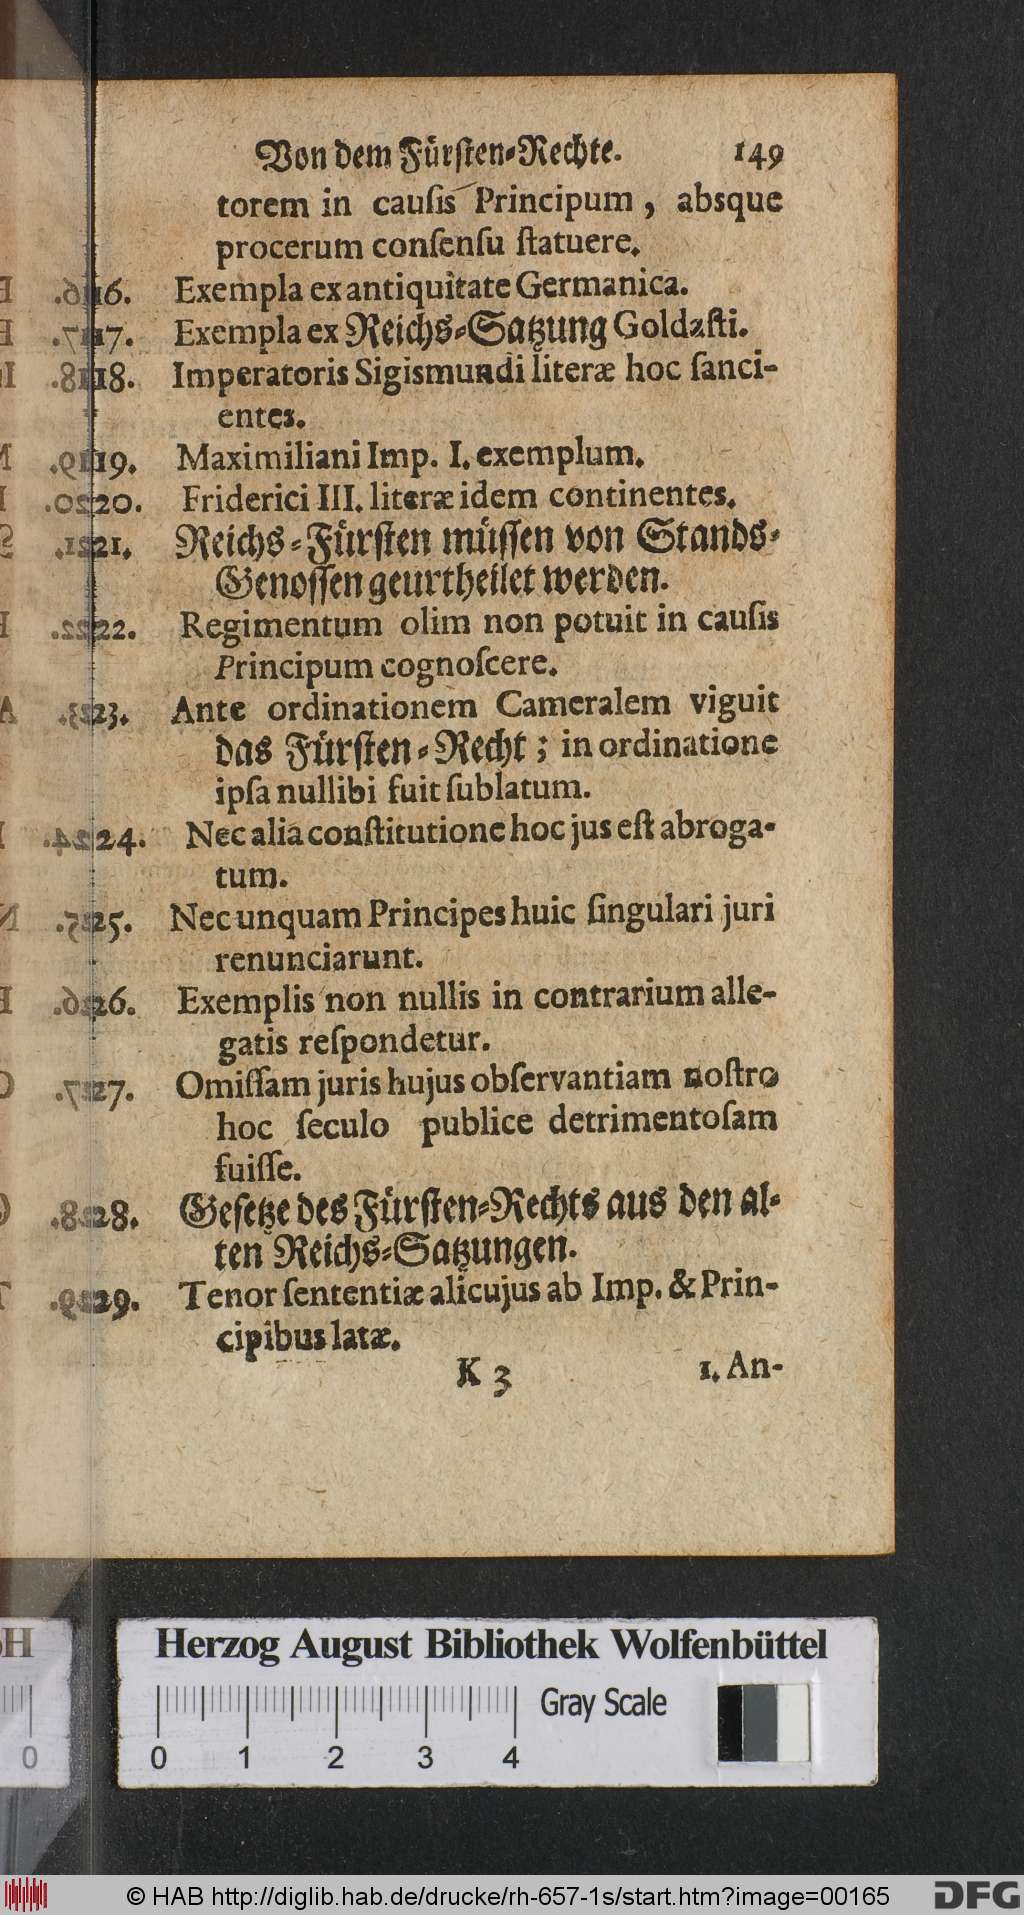 Von dem Fürſten-Rechte. 149
torem in cauſis Principum, absque
procerum conſenſu ſtatuere.
16. Exempla ex antiquitate Germanica.
17. Exempla ex Reichs-Satzung Goldaſti.
18. Imperatoris Sigismundi literæ hoc ſanci-
entes.
19. Maximiliani Imp. I. exemplum.
20. Friderici III. literæ idem continentes.
21. Reichs-Fürſten müſſen von Stands-
Genoſſen geurtheilet werden.
22. Regimentum olim non potuit in cauſis
Principum cognoſcere.
23. Ante ordinationem Cameralem viguit
das Fürſten-Recht; in ordinatione
ipſa nullibi fuit ſublatum.
24. Nec alia conſtitutione hoc jus eſt abroga-
tum.
25. Nec unquam Principes huic ſingulari juri
renunciarunt.
26. Exemplis non nullis in contrarium alle-
gatis reſpondetur.
27. Omiſſam juris hujus obſervantiam noſtro
hoc ſeculo publice detrimentoſam
fuiſſe.
28. Geſetze des Fürſten-Rechts aus den al-
ten Reichs-Satzungen.
29. Tenor ſententiæ alicujus ab Imp. & Prin-
cipibus latæ.
K 3 1. An-
Herzog August Bibliothek Wolfenbüttel
Gray Scale
0 1 2 3 4
© HAB http://diglib.hab.de/drucke/rh-657-1s/start.htm?image=00165
DFG